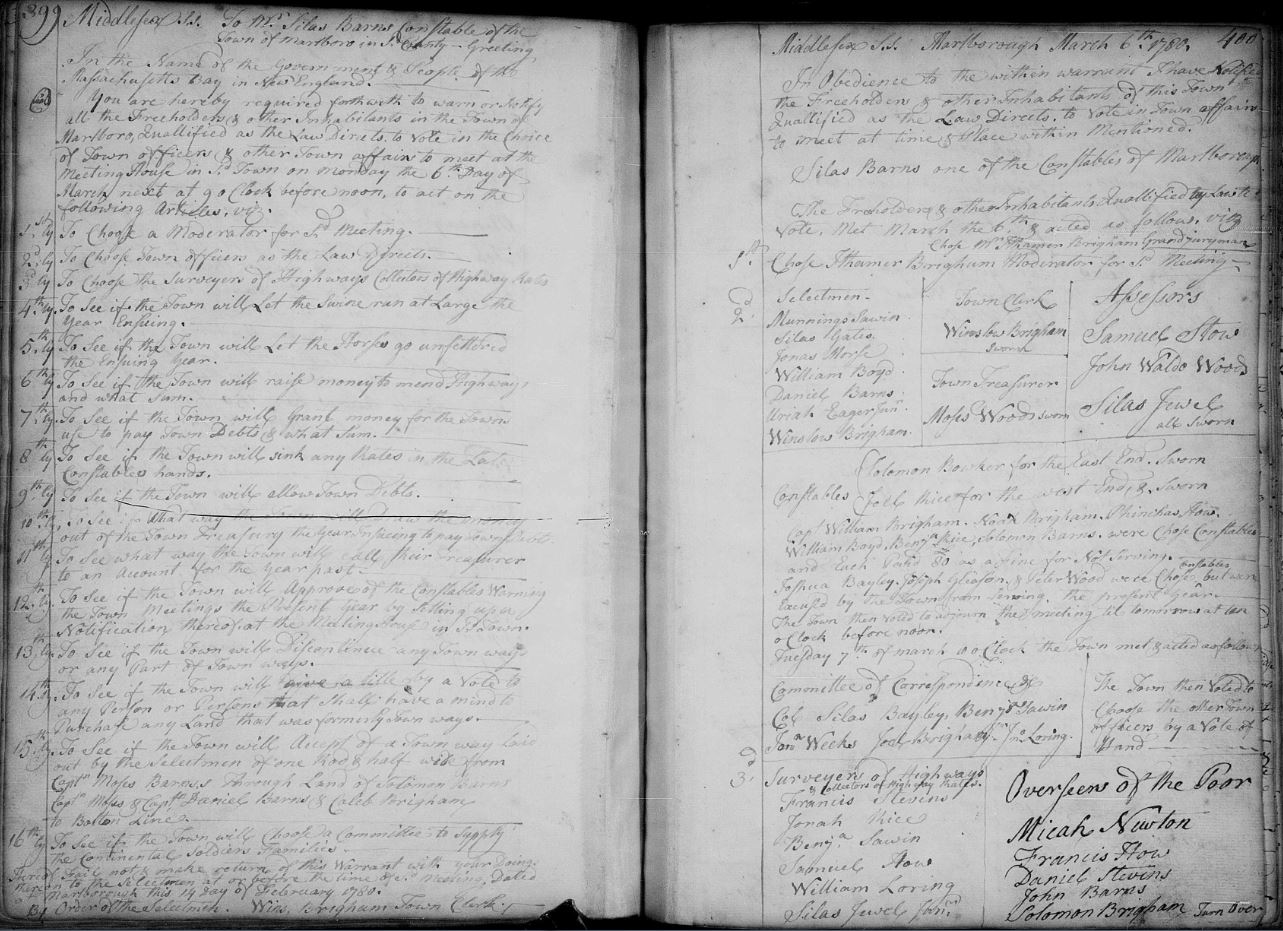 399
Middlesex S.s. To Mr. Silas Barns Constable of the
Town of Marlboro in Sd. County — Greeting
In the Name of the Government & People of the
Massachusetts Bay in New England.
You are hereby required forthwith to warn or Notify
all the Freeholders & other Inhabitants in the Town of
Marlboro, Quallified as the Law Directs, to Vote in the Choice
of Town officers & other Town affairs to meet at the
Meeting House in Sd. Town on monday the 6th Day of
March next at 9 o Clock before noon, to act on the
following Articles, viz.
1st.ly To Choose a Moderator for Sd. Meeting.
2d.ly To Choose Town officers as the Law Directs.
3d.ly To Choose the Surveyors of Highways Collectors of Highway Rates
4th.ly To See if the Town will Let the Swine run at Large the
Year Ensuing.
5th.ly To See if the Town will Let the Horses go unfettered
the Ensuing Year.
6th.ly To See if the Town will raise money to mend Highways
and what sum.
7th.ly To See if the Town will Grant money for the Towns
use to pay Town Debts & what Sum.
8th.ly To See if the Town will sink any Rates in the Late
Constables hands.
9th.ly To See if the Town will allow Town Debts.
10th.ly To See what way the Town will Draw the money
out of the Town Treasury the year Ensuing to pay Town Debts.
11th.ly To See what way the Town will Call their Treasurer
to an Account for the Year past.
12th.ly To See if the Town will Approve of the Constables Warning
the Town Meetings the Present Year by Setting up a
Notification thereof at the Meeting House in Sd. Town.
13th.ly To See if the Town will Discontinue any Town way
or any Part of Town ways.
14th.ly To See if the Town will give a title by a Vote to
any Person or Persons that Shall have a mind to
Purchase any Land that was formerly Town ways.
15th.ly To See if the Town will Accept of a Town way Laid
out by the Selectmen of one Rod & half wide from
Captn. Moses Barns's through Land of Solomon Barns
Captn. Moses & Captn. Daniel Barns & Caleb Brigham
to Bolton Line.
16th.ly To See if the Town will Choose a Committee to Supply
the Continental Soldiers Families.
Hereof Fail not & make return of this Warrant with your Doings
thereon to the Selectmen at or before the time of Sd. Meeting, Dated
Marlborough this 14 day of February 1780.
By Order of the Selectmen. Wins. Brigham Town Clerk
400
Middlesex S.s. Marlborough March 6th 1780.
In Obedience to the within warrant I have Notified
the Freeholders & other Inhabitants of this Town
Quallified as the Law Directs, to Vote in Town affairs
to meet at time & Place within Mentioned.
Silas Barns one of the Constables of Marlborough
The Freeholders & other Inhabitants Quallified by Law to
Vote, Met March the 6th & acted as follows, viz
Chose Mr. Ithamer Brigham Grand juryman
1st. Chose Ithamer Brigham Moderator for Sd. Meeting
2d. Selectmen.
Munnings Sawin
Silas Gates.
Jonas Morse
William Boyd
Daniel Barns
Uriah Eager junr.
Winslow Brigham.
Town Clerk
Winslow Brigham
Sworn
Town Treasurer
Moses Woods sworn
Assessors
Samuel Stow
John Waldo Wood
Silas Jewel
all Sworn
Constables
Solomon Bowker for the East End. Sworn
Joel Rice for the west End, & Sworn
Capt. William Brigham. Noah Brigham. Phinehas How.
William Boyd, Benja. Rice, Solomon Barns. were Chose Constables
and Each Paid 80 as a fine for Not Serving.
Joshua Bayley, Joseph Gleason, & Peter Wood were Chose Constables but ware
Excused by the Town from Serving the present Year.
The Town then Voted to adjourn the meeting til tomorrow at ten
o Clock before noon.
Tuesday 7th of march 10 o Clock the Town met & acted as follows
Committee of Correspondence &c
Col. Silas Bayley, Benja. Sawin
Jona. Weeks Joel Brigham Jno. Loring.
The Town then Voted to
Choose the other Town
officers by a Vote of
Hand
3d. Surveyors of Highways
& Collectors of Highway Rates.
Francis Stevins
Jonah Rice
Benja. Sawin
Samuel How
William Loring
Silas Jewel Junr.
Overseers of the Poor
Micah Newton
Francis How
Daniel Stevins
John Barns
Solomon Brigham
Turn Over